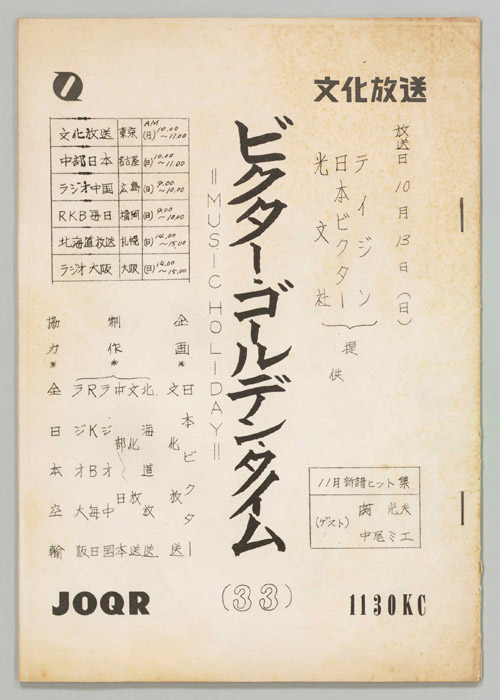 文化放送
放送日 10月13日(日)
テイジン
日本ビクター
光文社
提供
ビクター・ゴールデン・タイム
=MUSIC HOLIDAY=
(33)
文化放送 東京 (日) AM 10.00~11.00
中部日本 名古屋 (日) 10.00~11.00
ラジオ中国 広島 (日) 9.00~10.00
RKB毎日 福岡 (日) 9.00~10.00
北海道放送 札幌 (日) 14.00~15.00
ラジオ大阪 大阪 (日) 14.00~15.00
企画*
日本ビクター
文化放送
制作*
北海道放送
文化放送
中部日本
ラジオ中国
RKB毎日
ラジオ大阪
協力*
全日本空輸
11月新譜ヒット集
(ゲスト) 関 光夫
中尾ミエ
JOQR
1130KC